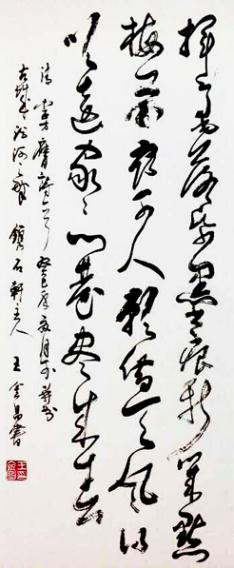 揮毫落紙墨痕新幾點
梅花最可人願借天風
吹遠家家門巷盡成春
清 李方膺詩一首 癸巳年夏月於
古城 鐫石軒主人 王金昌書